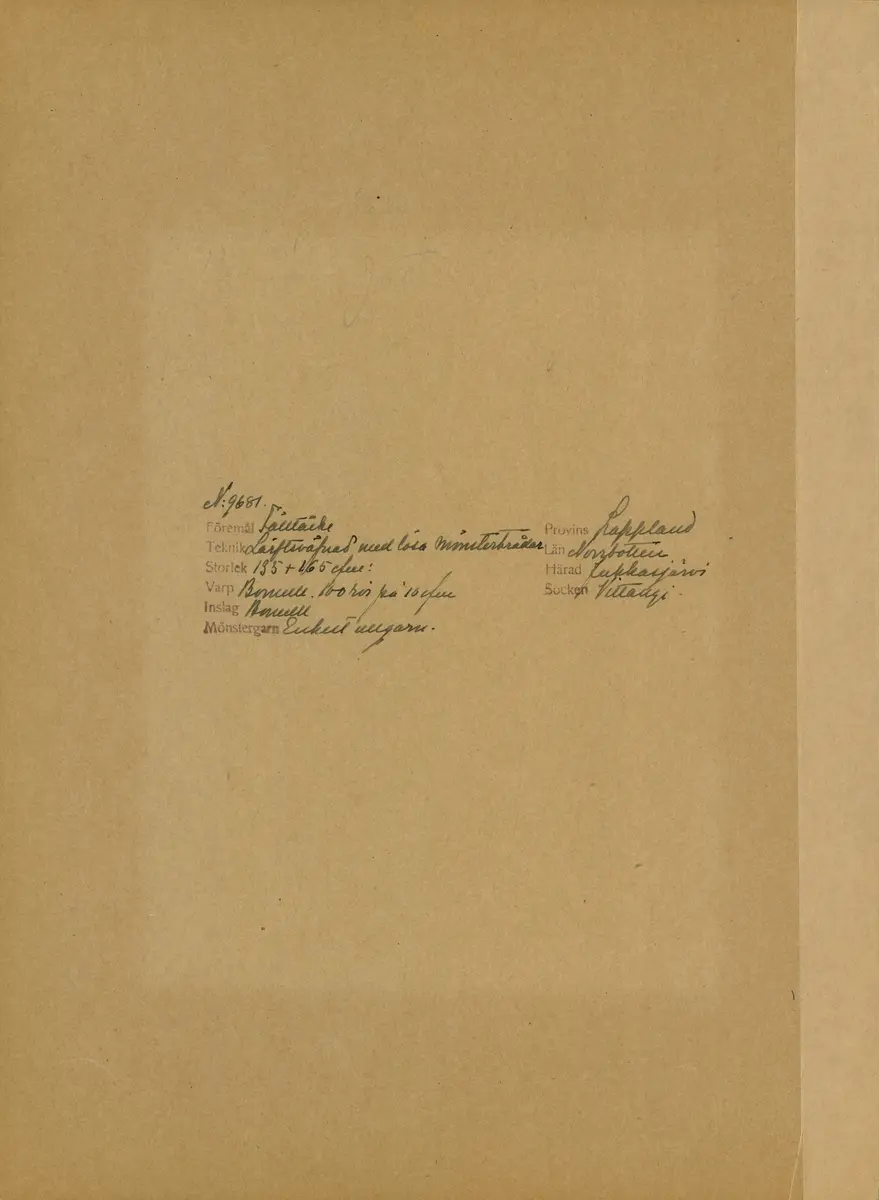 N:9681.
Föremål Fälltäcke
Teknik Läftsväfnad med lösa Mönstertrådar
Storlek 135 + 165 c/m:
Varp Bomull. 100 rör på 10 c/m
Inslag Bomull
Mönstergarn Enkelt ullgarn.
Provins Lappland
Län Norrbotten
Härad Jukkasjärvi
Socken Vittangi.